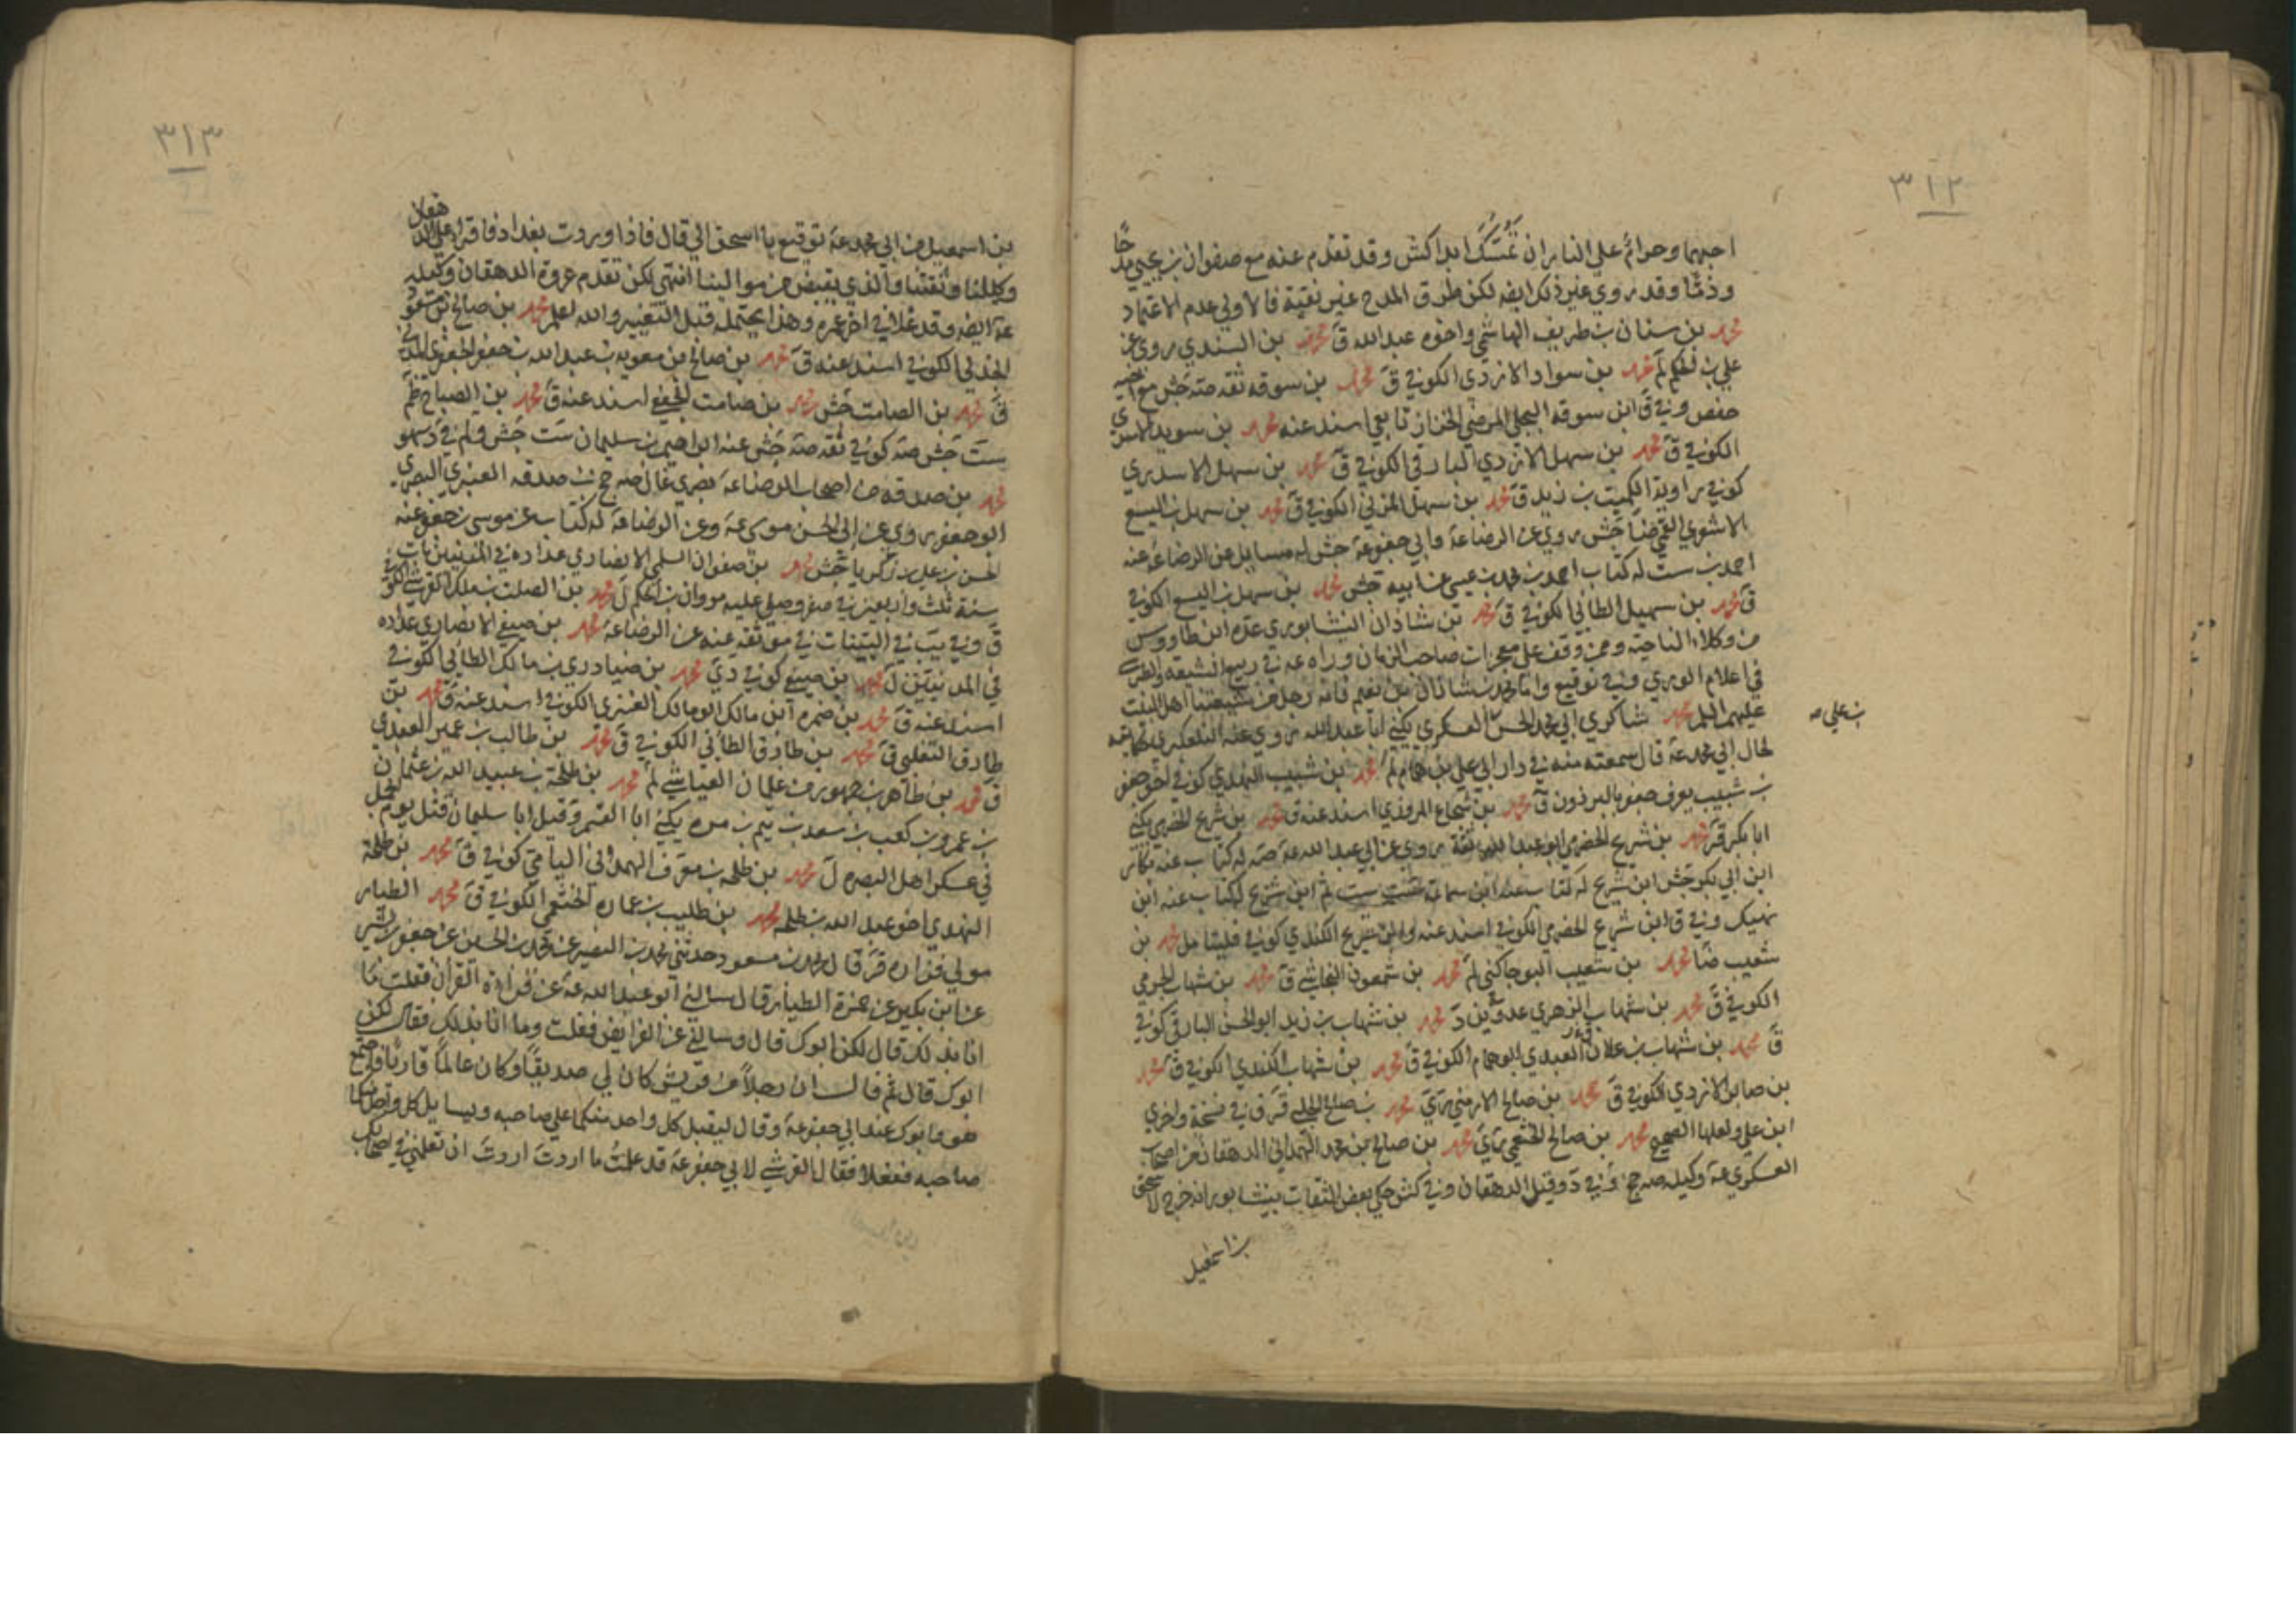 ٣١٢
احبهما وحرام على النار ان تمسك ابدا كش وقد تقدم عنه مع صفوان بن يحيى مدحا
وذمّا وقد روى غير ذلك ايضه لكن طرق المدح غير نقية فالاولى عدم الاعتماد
محمد بن سنان بن طريف الهاشمي واخوه عبدالله ق محمد بن السندي روى عن
علي بن الحكم لم محمد بن سوار الازدي الكوفي ق محمد بن سوقه ثقه صه جش مع اخيه
حفص وفي ق ابن سوقه البجلي المرضي الخزاز تابعي اسند عنه محمد بن سويد الاسدي
الكوفي ق محمد بن سهل الازدي البارقي الكوفي ق محمد بن سهل الاسدي
كوفي راوية الكميت بن زيد ق محمد بن سهل المزني الكوفي ق محمد بن سهل بن اليسع
الاشعري القمي ضا جش روى عن الرضا عة وابي جعفر عة جش له مسايل عن الرضا عة عنه
احمد بن ست له كتاب احمد بن محمد بن عيسى عن ابيه جش محمد بن سهل بن اليسع الكوفي
ق محمد بن سهيل الطائي الكوفي ق محمد بن شاذان النيشابوري عده ابن طاووس
من وكلاء الناحية وممن وقف على معجزات صاحب الزمان وراه عه في ربيع الشيعه والطبرسي
في اعلام الورى وفي توقيع واما محمد بن شاذان بن نعيم فانه رجل من شيعتنا اهل البيت
عليهم السلم محمد شاكري ابي محمد الحسن العسكري يكنى ابا عبد الله روى عنه التلعكبري
بن علي صه
لحال ابي محمد عة قال سمعته منه في دار ابي علي بن همام لم محمد بن شبيب النهدي كوفي اخو جعفر
بن شبيب يعرف جعفر بالبرذون ق محمد بن شجاع المروذي اسند عنه ق محمد بن شريح الحضرمي يكنى
ابا بكر قر محمد بن شريح الحضرمي ابو عبد الله ثقة روى عن ابي عبد الله عة صه له كتاب عنه بكار
ابن ابي بكر جش ابن شريح له كتاب عنه ابن سماعة ست ثم ابن شريح له كتاب عنه ابن
نهيك وفي ق ابن شريح الحضرمي الكوفي اسند عنه وابن شريح الكندي كوفي فليتامل محمد بن
شعيب ضا محمد بن شعيب ابو جاكني لم محمد بن شمعون النجاشي ق محمد بن شهاب الجرمي
الكوفي ق محمد بن شهاب الزهري عدو ين د محمد بن شهاب بن زيد ابو الحسن البارقي كوفي
ق محمد بن شهاب بن علاق العبدي ابو همام الكوفي ق محمد بن شهاب الكندي الكوفي ق محمد
بن صابر الازدي الكوفي ق محمد بن صالح الارمني ري محمد بن صالح البجلي قر ق في نسخة واخرى
ابن علي ولعلها الصحيح محمد بن صالح الخثعمي ري محمد بن صالح بن محمد الهمداني الدهقان من اصحاب
العسكري عة وكيله صه جخ وفي د وقيل الدهقان وفي كش حكى بعض الثقات بنيشابور انه خرج لاسحق
بن اسمعيل
٣١٣
بن اسمعيل من ابي محمد عة توقيع يا اسحق الى قال فاذا وردت بغداد فاقراه على الدهقان
وكيلنا وثقتنا والذي يقبض من موالينا انتهى لكن تقدم عروة الدهقان وكيله
عة ايضه وقد غلا في اخر عمره وهذا يحتمله قبل التغيير والله اعلم محمد بن صالح بن مسعود
الجدلي الكوفي اسند عنه ق محمد بن صالح بن معويه بن عبد الله بن جعفر الجعفري المدني
ق محمد بن الصامت جش محمد بن صامت الجعفي اسند عنه ق محمد بن الصباح ظم
ست جش صه كوفي ثقه صه جش عنه ابراهيم بن سليمان ست جش ولم في د سهو
محمد بن صدقه من اصحاب الرضا عة بصري غال صه جخ بن صدقه العنبري البصري
ابو جعفر روى عن ابي الحسن موسى عة وعن الرضا عة له كتاب عن موسى بن جعفر عنه
الحسن بن علي بن زكريا جش محمد بن صفوان السلمي الانصاري عداده في المدنيين مات في
سنة ثلث واربعين في صفر وصلى عليه مروان بن الحكم ل محمد بن الصلت بن ملك القرشي الكوفي
ق وفي يب في البينات في موثقه عنه عن الرضا عة محمد بن صيفي الانصاري عداده
في المدنيين ل محمد بن صيفي كوفي دي محمد بن ضيادري بن مالك الطائي الكوفي
اسند عنه ق محمد بن ضمره ابن مالك ابو مالك العنزي الكوفي اسند عنه ق محمد بن
طارق التغلبي ق محمد بن طارق الطائي الكوفي ق محمد بن طالب بن عمير العبدي
ق محمد بن طاهر بن جمهور من غلمان العياشي لم محمد بن طلحة بن عبيد الله بن عثمان
بن عمرو بن كعب بن سعد بن تيم بن مره يكنى ابا القسم وقيل ابا سليمان قتل يوم الجمل
في عسكر اهل البصره ل محمد بن طلحه بن مصرف الهمداني اليامي كوفي ق محمد بن طلحة
النهدي اخو عبد الله بن طلحه محمد بن طليب بن عماره الخثعمي الكوفي ق محمد الطيار
مولى فزاره قر قال محمد بن مسعود حدثني محمد بن النصير عن محمد بن الحسين عن جعفر بن بشير
عن ابن بكير عن حمزة الطيار قال سالني ابو عبد الله عة عن قراءة القران فقلت ما
انا بذلك قال لكن ابوك قال وسالني عن الفرايض فقلت وما انا بذلك فقال لكن
ابوك قال ثم قال ان رجلا من قريش كان لي صديقا وكان عالما قاريا فاجتمع
هو وابوك عند ابي جعفر عة وقال ليقبل كل واحد منكما على صاحبه ويسايل كل واحد منكما
صاحبه ففعلا فقال القرشي لابي جعفر عة قد علمت ما اردت اردت ان تعلمني ان في اصحابك